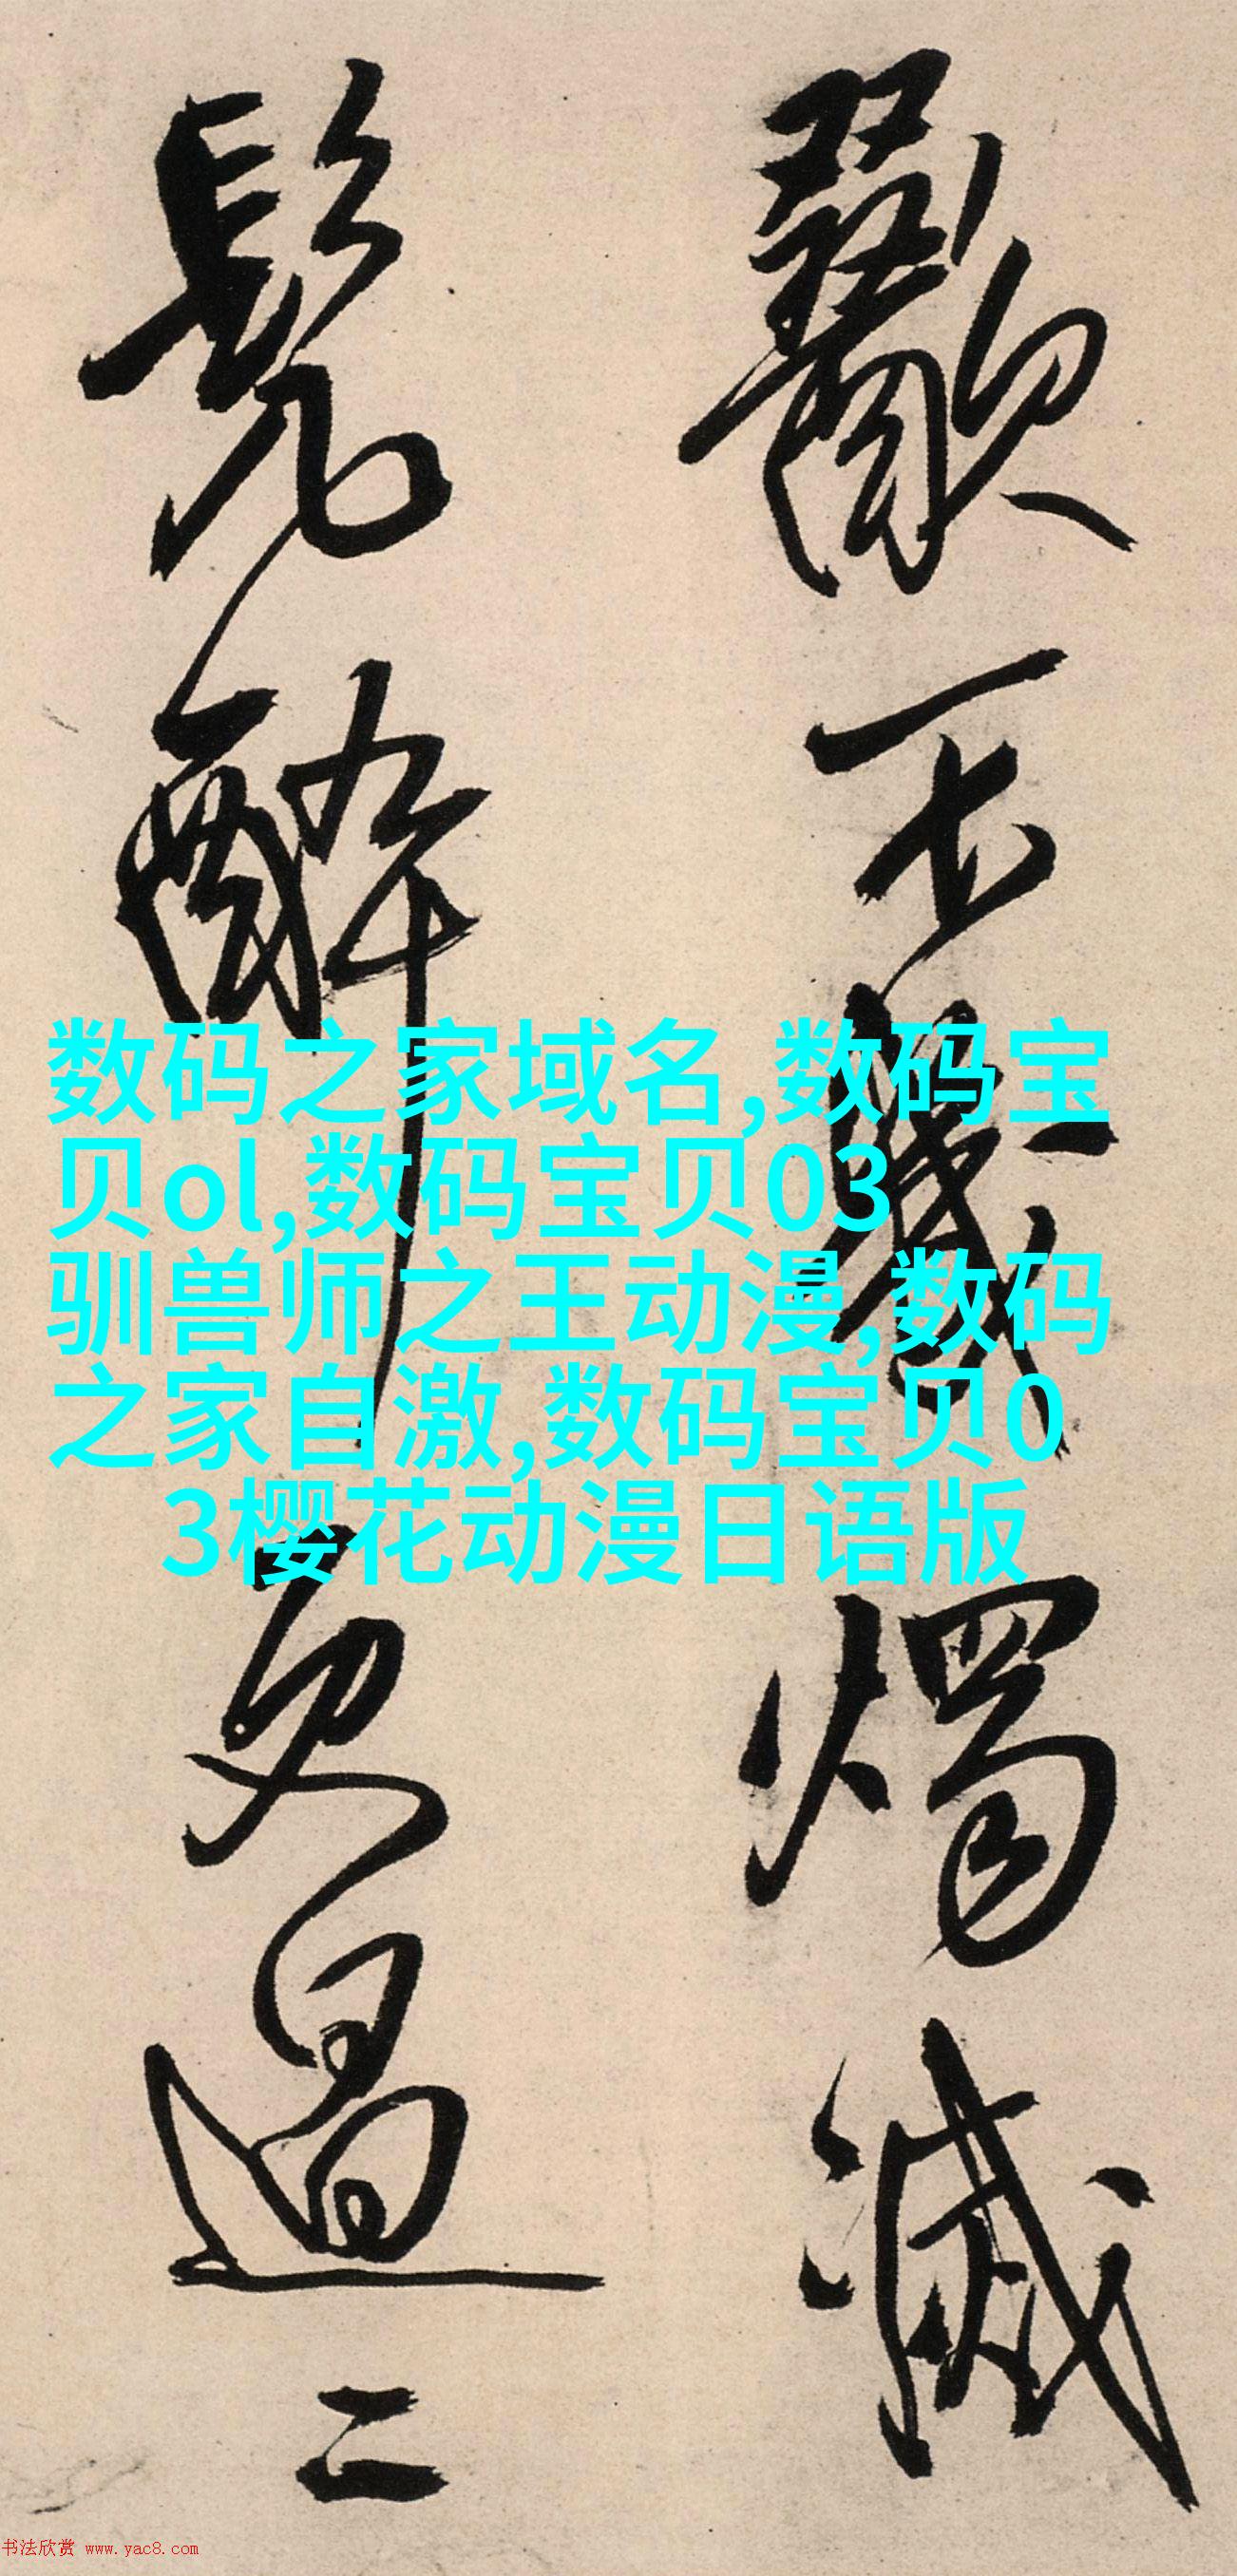 不燭滅
醉更過二
数码之家域名,数码宝
贝ol,数码宝贝03
驯兽师之王动漫,数码
之家自激,数码宝贝0
3樱花动漫日语版
书法欣赏 www.yac8.com